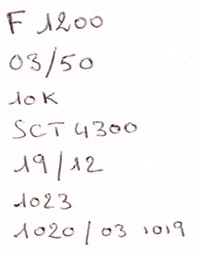 F 1200
03/50
10K
SCT 4300
19/12
1023
1020/03 1019